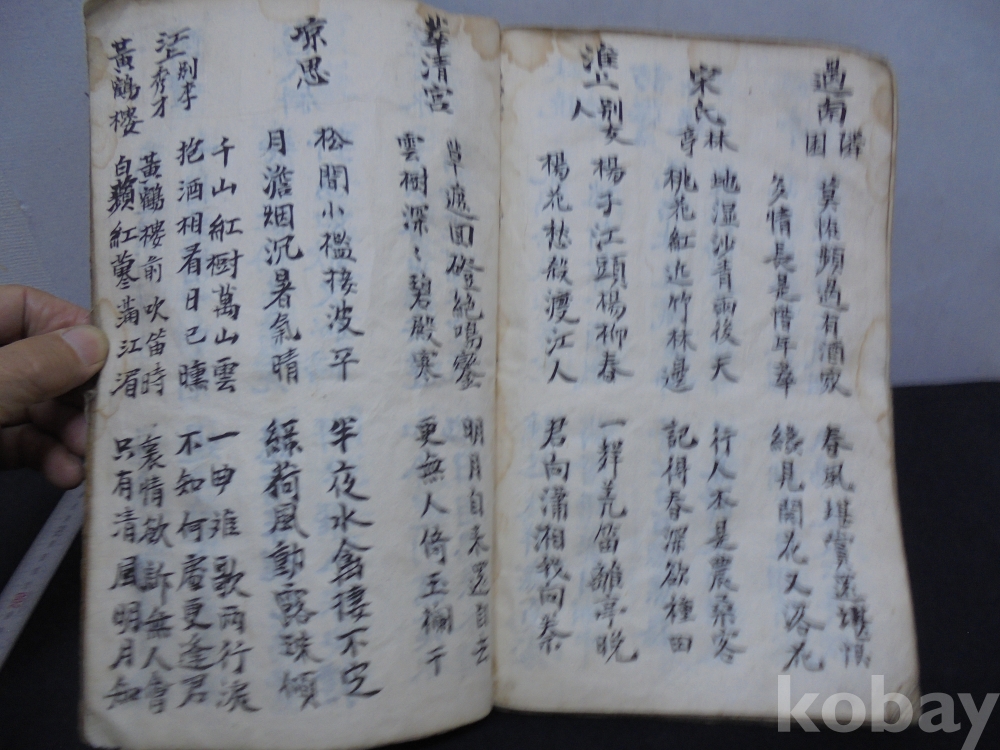 過南隣園
莫怪頻過有酒家
多情長是惜年華
春風堪賞還堪恨
纔見開花又落花
宋氏林亭
地湿沙青雨後天
桃花紅近竹林邊
行人本是農桑客
記得春深欲種田
淮上別友人
楊子江頭楊柳春
楊花愁殺渡江人
一聲羌笛離亭晩
君向瀟湘我向秦
華清宮
草遮回磴絶鳴鑾
雲樹深〻碧殿寒
明月自来還自去
更無人倚玉欄干
凉思
松間小檻接波平
月澹烟沉暑氣晴
半夜水禽棲不定
緑荷風動露珠傾
江上別李秀才
千山紅樹萬山雲
把酒相看日已曛
一曲離歌兩行淚
不知何處更逢君
黃鶴楼
黃鶴楼前吹笛時
白蘋紅蓼滿江湄
衷情欲訴無人會
只有清風明月知
kobay